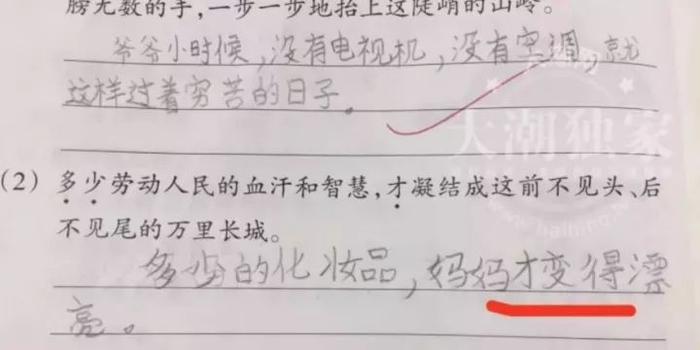 膀无数的手，一步一步地抬上这陡峭的山岭。
爷爷小时候，没有电视机，没有空调，就
这样过着穷苦的日子。
大潮独家
(2) 多少劳动人民的血汗和智慧，才凝结成这前不见头、后
不见尾的万里长城。
多少的化妆品，妈妈才变得漂
亮。